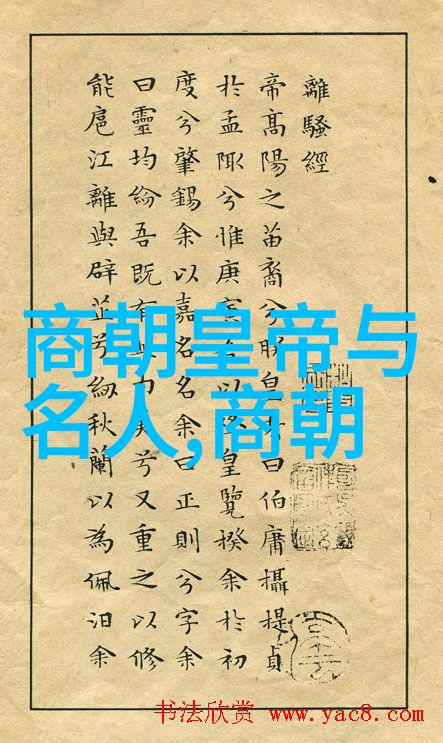 離騷經
帝高陽之苗裔兮朕皇曰伯庸攝提貞
於孟陬兮惟庚寅以降皇覽揆余於初
度兮肇錫余以嘉名名余曰正則兮字余
曰靈均紛吾既有此美兮又重之以修
能扈江離與辟芷兮紉秋蘭以為佩汩余
商朝皇帝与
名人,商朝
书法欣赏 www.yac8.com